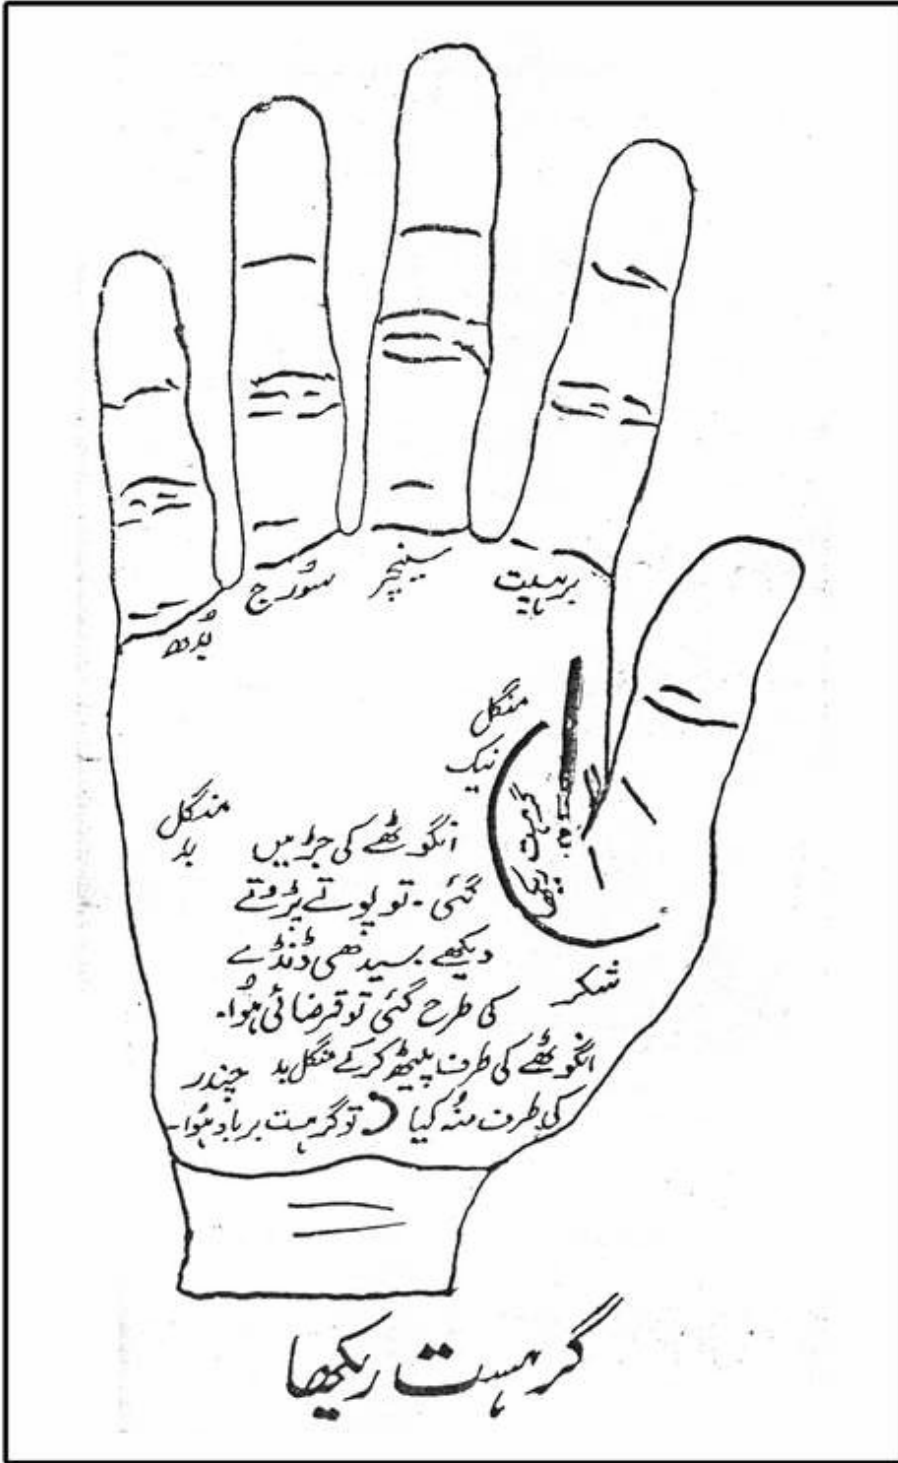 برہسپت
سنیچر
سورج
بُدھ
منگل
نیک
گرہست ریکھا
منگل
بد
انگوٹھے کی جڑ میں
گئی - تو پوتے پڑوتے
دیکھے . سیدھی ڈنڈے
کی طرح گئی تو قرضائی ہُوا -
شکر
انگوٹھے کی طرف پیٹھ کر کے منگل بد
چندر
کی طرف منُہ کیا تو گرہست برباد ہُوا -
گرہست ریکھا